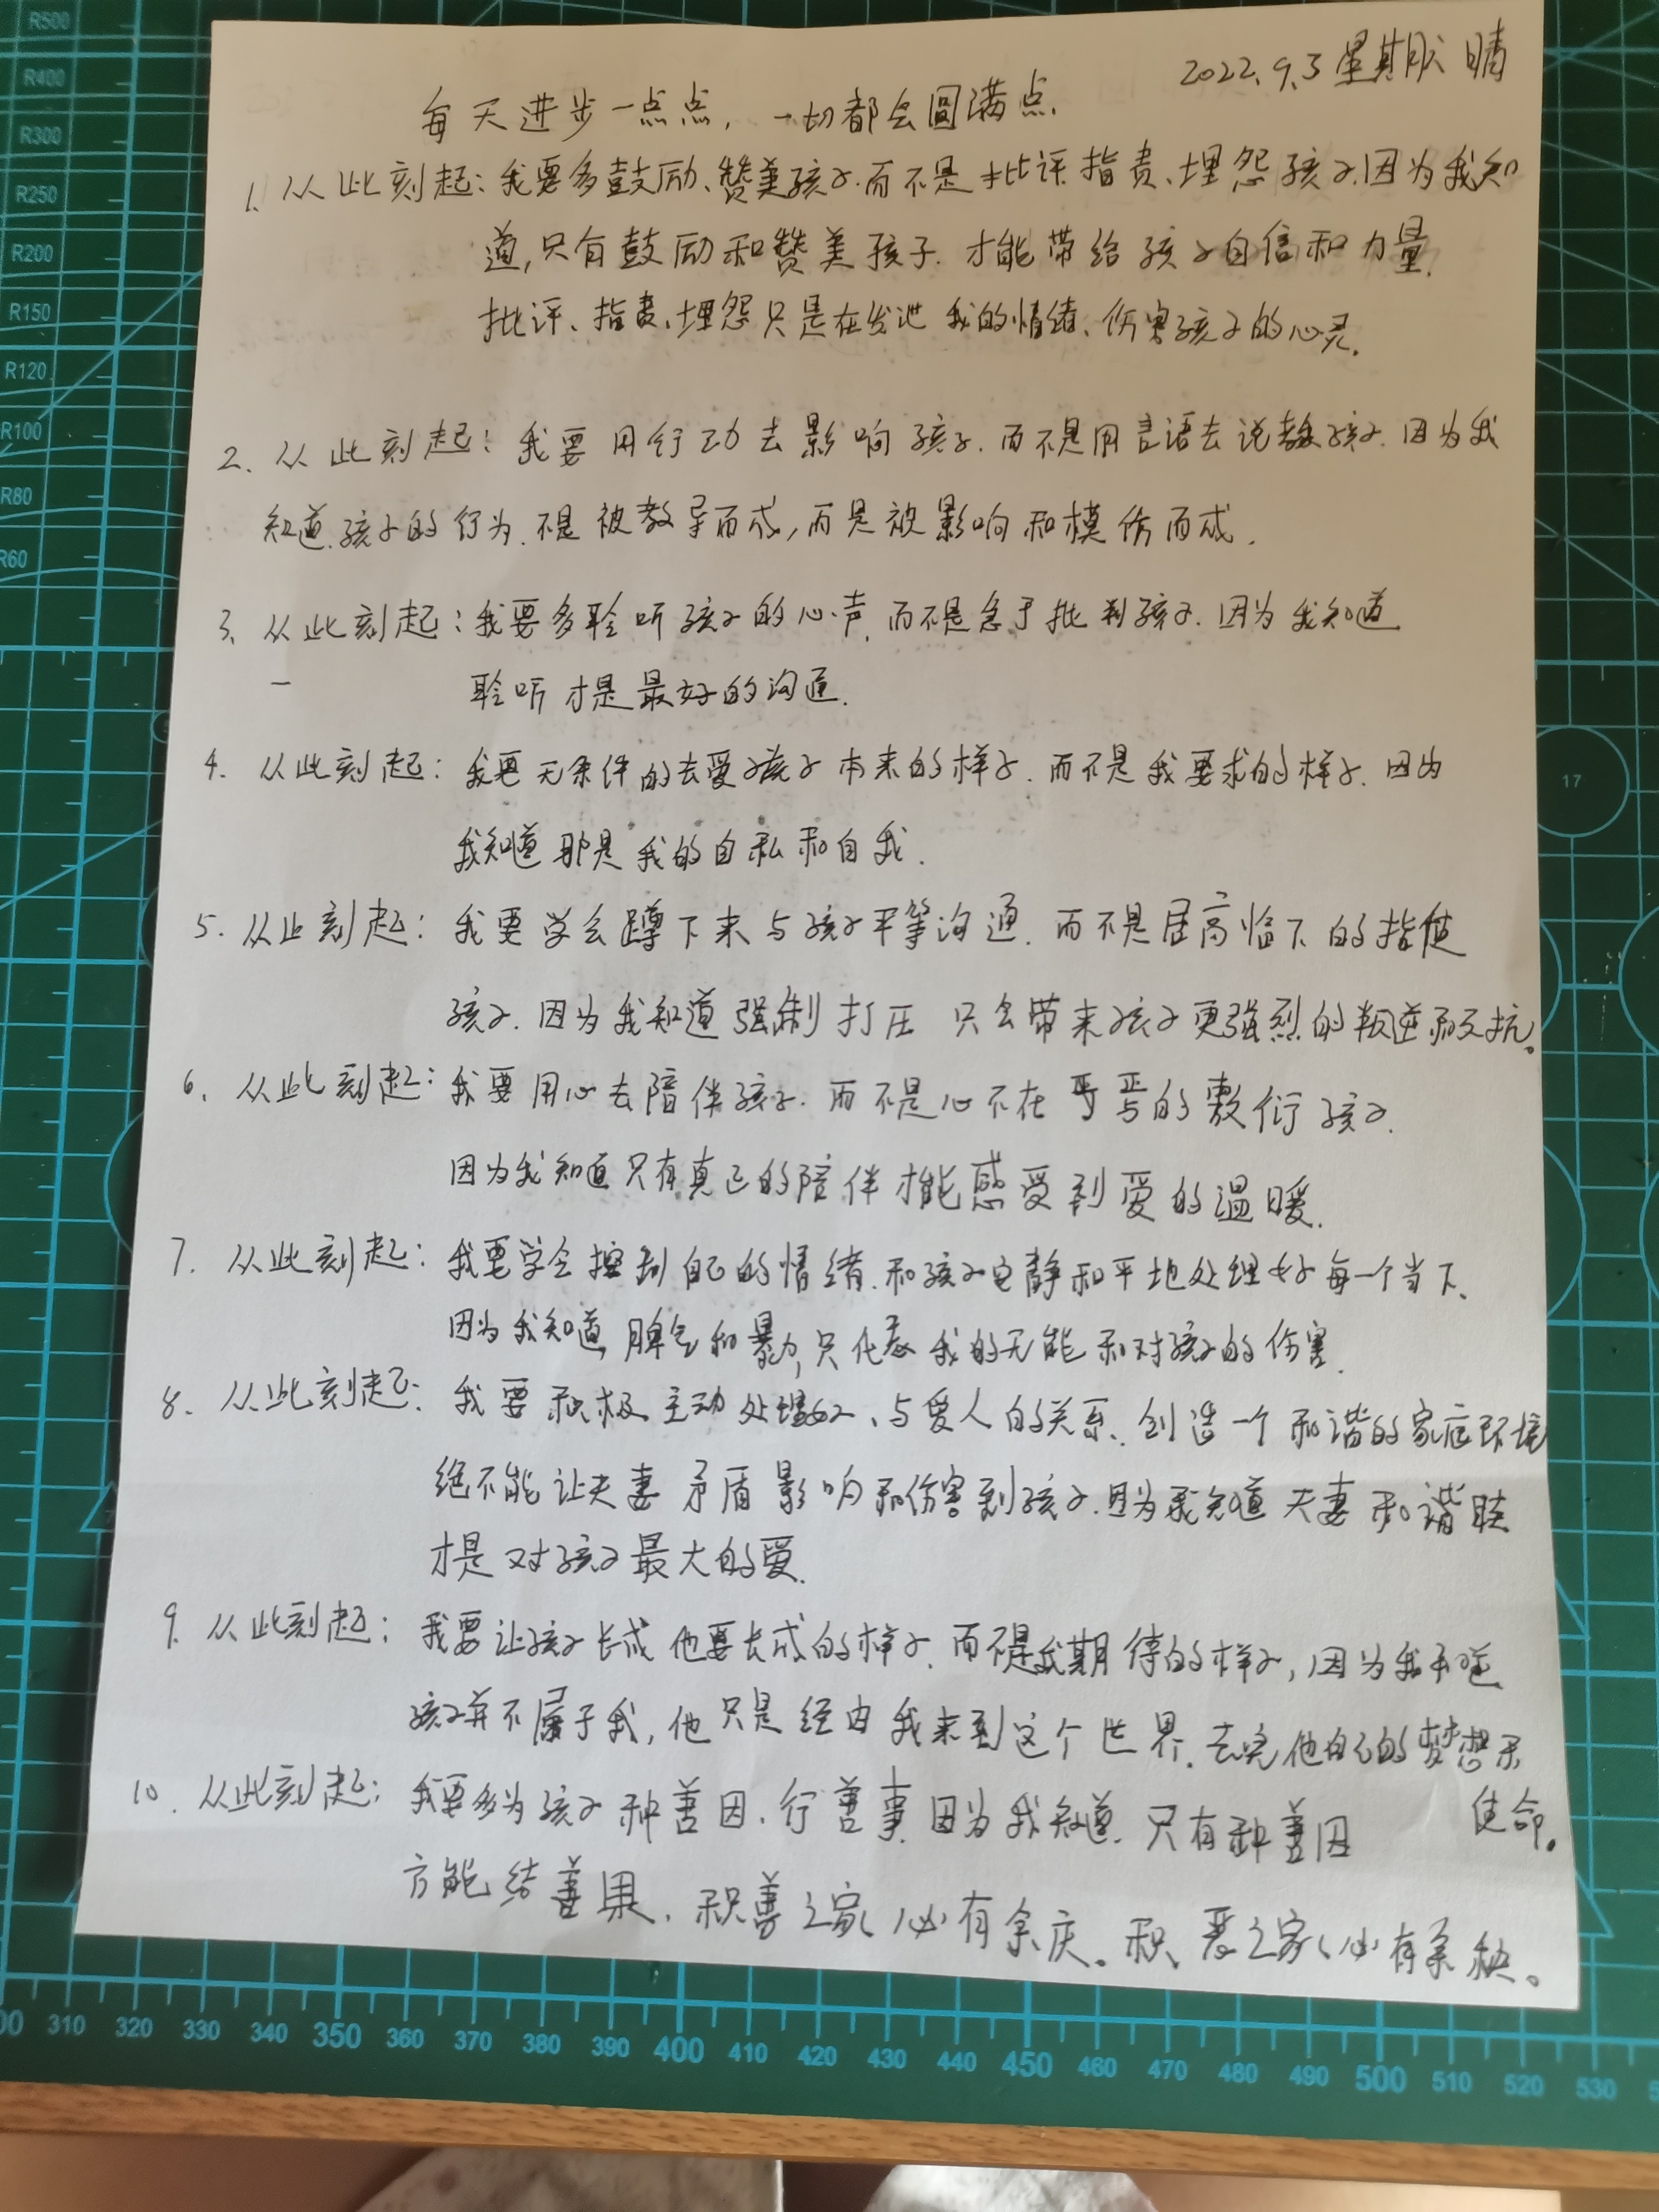 R500
R400
R350
R300
R250
R200
R150
R120
R100
R80
R60
17
2022.9.3 星期六 晴
每天进步一点点，一切都会圆满点.
1. 从此刻起：我要多鼓励、赞美孩子.而不是批评.指责、埋怨孩子.因为我知
道,只有鼓励和赞美孩子.才能带给孩子自信和力量.
批评、指责、埋怨只是在发泄我的情绪、伤害孩子的心灵.
2. 从此刻起：我要用行动去影响孩子.而不是用言语去说教孩子.因为我
知道.孩子的行为.不是被教导而成,而是被影响和模仿而成.
3. 从此刻起：我要多聆听孩子的心声.而不是急于批判孩子.因为我知道
聆听才是最好的沟通.
4. 从此刻起：我要无条件的去爱孩子本来的样子.而不是我要求的样子.因为
我知道那是我的自私和自我.
5. 从此刻起：我要学会蹲下来与孩子平等沟通.而不是居高临下的指使
孩子.因为我知道强制打压只会带来孩子更强烈的叛逆和反抗。
6. 从此刻起：我要用心去陪伴孩子.而不是心不在焉的敷衍孩子.
因为我知道只有真正的陪伴才能感受到爱的温暖.
7. 从此刻起：我要学会控制自己的情绪.和孩子安静和平地处理好每一个当下、
因为我知道,脾气和暴力,只代表我的无能和对孩子的伤害.
8. 从此刻起：我要积极主动处理好、与爱人的关系、创造一个和谐的家庭环境
绝不能让夫妻矛盾影响和伤害到孩子.因为我知道夫妻和谐
才是对孩子最大的爱.
9. 从此刻起：我要让孩子长成他要长成的样子.而不是我期待的样子,因为我知道
孩子并不属于我,他只是经由我来到这个世界.去完他自己的梦想和
使命。
10. 从此刻起：我要多为孩子种善因.行善事.因为我知道.只有种善因
方能结善果.积善之家、必有余庆。积、恶之家、必有余秧。
00 310 320 330 340 350 360 370 380 390 400 410 420 430 440 450 460 470 480 490 500 510 520 530